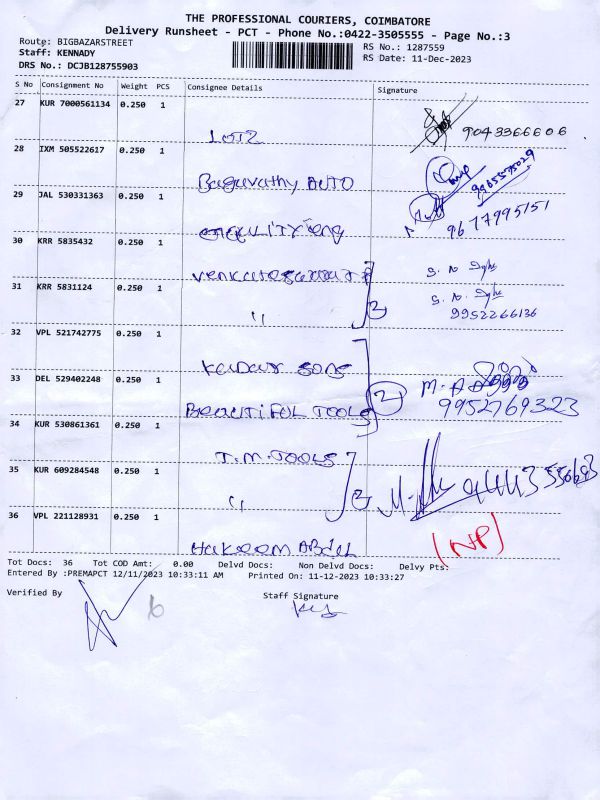 THE PROFESSIONAL COURIERS, COIMBATORE
Delivery Runsheet - PCT - Phone No.:0422-3505555 - Page No.:3
Route: BIGBAZARSTREET
RS No.: 1287559
Staff: KENNADY
RS Date: 11-Dec-2023
DRS No.: DCJB128755903
S No Consignment No Weight PCS Consignee Details Signature
27 KUR 7000561134 0.250 1
LOTZ 9043366606
28 IXM 505522617 0.250 1
Baguvathy AUTO 9965595029
29 JAL 530331363 0.250 1
9677995151
30 KRR 5835432 0.250 1
31 KRR 5831124 0.250 1
" 2 9952266136
32 VPL 521742775 0.250 1
Sons
33 DEL 529402248 0.250 1
BEAUTIFUL TOOLS 2 9952769323
34 KUR 530861361 0.250 1
T.M. TOOLS
35 KUR 609284548 0.250 1
" 2
36 VPL 221128931 0.250 1
Hakeem Abdul (NP)
Tot Docs: 36 Tot COD Amt: 0.00 Delvd Docs: Non Delvd Docs: Delvy Pts:
Entered By :PREMAPCT 12/11/2023 10:33:11 AM Printed On: 11-12-2023 10:33:27
Verified By Staff Signature
6